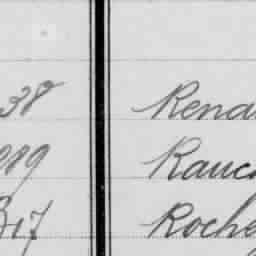 38 Rena
289 Rauc
317 Roche